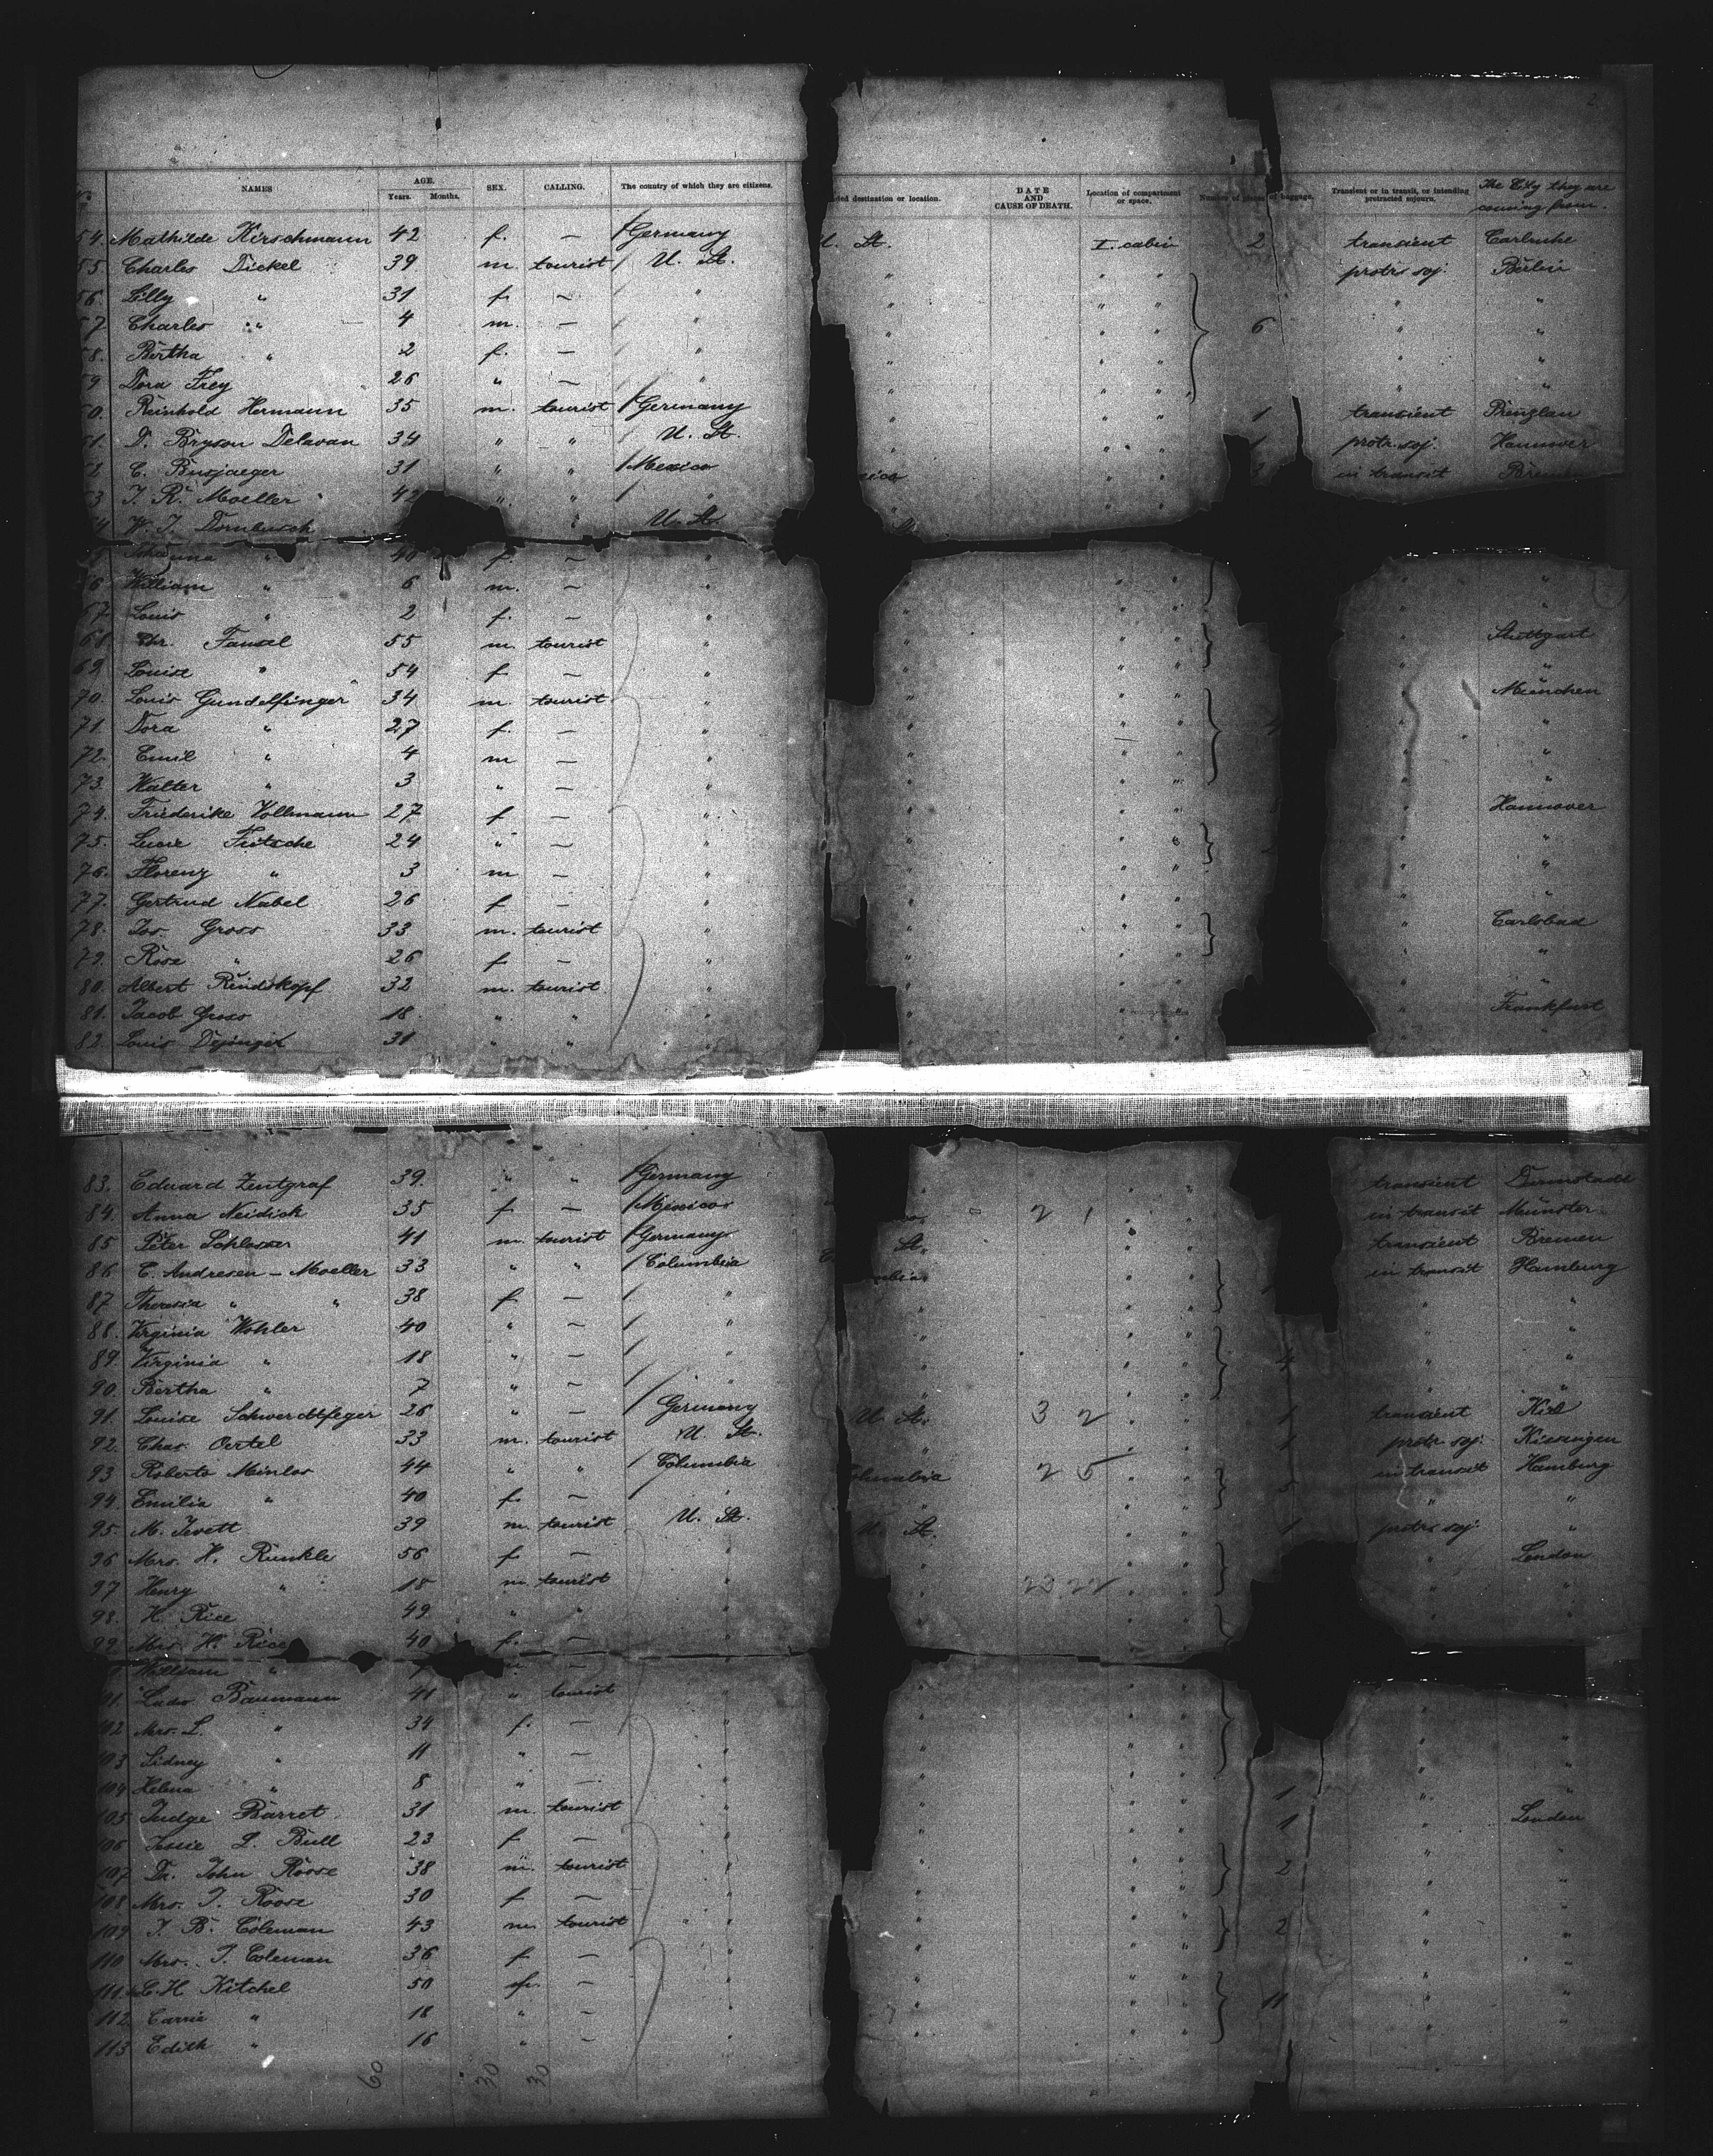 NAMES AGE. Years. Months. SEX. CALLING. The country of which they are citizens. ded destination or location. DATE AND CAUSE OF DEATH. Location of compartment or space. Number of pieces of baggage. Transient or in transit, or intending protracted sojourn. The City they are coming from.
54. Mathilde Kirschmann 42 f. — Germany U. St. I. cabin 2 transient Carlsruhe
55 Charles Dickel 39 m. tourist U. St. " " " protr. soj. Berlin
56. Lilly " 31 f. — " " " " " "
57 Charles " 4 m. — " " " " 6 " "
58. Bertha " 2 f. — " " " " " "
59 Dora Frey 26 " — " " " " " "
60. Reinhold Hermann 35 m. tourist Germany " " " 1 transient Prenzlau
61. D. Bryson Delavan 34 " " U. St. " " " 1 protr. soj. Hannover
62 C. Busjaeger 31 " " Mexico xico " " in transit Brem
63 J. R. Moeller 42 " " " " " "
64 W. J. Dornbusch " U. St. St.
" 40 f. — "
66 William " 6 m. — " " " " "
67. Louis " 2 f. — " " " "
68. Chr. Fausel 55 m. tourist " " " " " Stuttgart
69 Louise " 54 f — " " " " " "
70. Louis Gundelfinger 34 m. tourist " " " " " München
71 Dora " 27 f. — " " " " " "
72. Emil " 4 m — " " " " " "
73. Walter " 3 " — " " " " " "
74. Friederike Vollmann 27 f — " " " " " Hannover
75. Lucie Fritsche 24 " — " " " " " "
76. Florenz " 3 m — " " " " " "
77. Gertrud Nabel 26 f — " " " " " "
78. Jos. Gross 33 m. tourist " " " " " Carlsbad
79. Rosa " 26 f — " " " " " "
80. Albert Rindskopf 32 m. tourist " " " " " "
81. Jacob Gross 18 " " " " " Frankfurt
82. Louis 31 " " " "
83. Eduard Zentgraf 39. " " Germany " " " transient Darmstadt
84. Anna Neidich 35 f — Mexico 2 1 " " in transit Münster
85 Peter Schlosser 41 m. tourist Germany St. " " transient Bremen
86 C. Andresen - Moeller 33 " " Columbia mbia " " in transit Hamburg
87 Theresia " " 38 f — " " " " " "
88. Virginia Wohler 40 " — " " " " " "
89. Virginia " 18 " — " " " " 4 " "
90. Bertha " 7 " — " " " " " "
91. Louise Schwerdtfeger 26 " — Germany U. St. 3 2 " " 1 transient Kiel
92. Chas. Oertel 33 m. tourist U. St. " " " 1 protr. soj. Kissingen
93 Roberto Minlos 44 " " Columbia Columbia 2 5 " " in transit Hamburg
94. Emilia " 40 f. — " " " " 5 " "
95. M. Jevett 39 m. tourist U. St. U. St. " " 1 protr. soj. "
96 Mrs. H. Runkle 56 f — " " " " London
97 Henry " 18 m. tourist " " " " "
98. H. Rice 49 " " " " " " "
99. Mrs. H. Rice 40 f. — "
William " —
101. Ludw. Baumann 41 " tourist " " " "
102 Mrs. L. " 34 f. — " " " " " "
103 Sidney " 11 " — " " " " " "
104 Helena " 8 " — " " " " 1 " "
105 Judge Barret 31 m. tourist " " " " 1 " London
106 Jessie L. Bull 23 f — " " " " " "
107 Dr. John Roose 38 m. tourist " " " " 2 " "
108 Mrs. J. Roose 30 f — " " " " " "
109 J. B. Coleman 43 m. tourist " " " " 2 " "
110 Mrs. J. Coleman 36 f — " " " " " "
111. L. H Kitchel 50 f. — " " " " " "
112. Carrie " 18 " — " " " " 11 " "
113 Edith " 16 " — " " " " " "
60 30 30